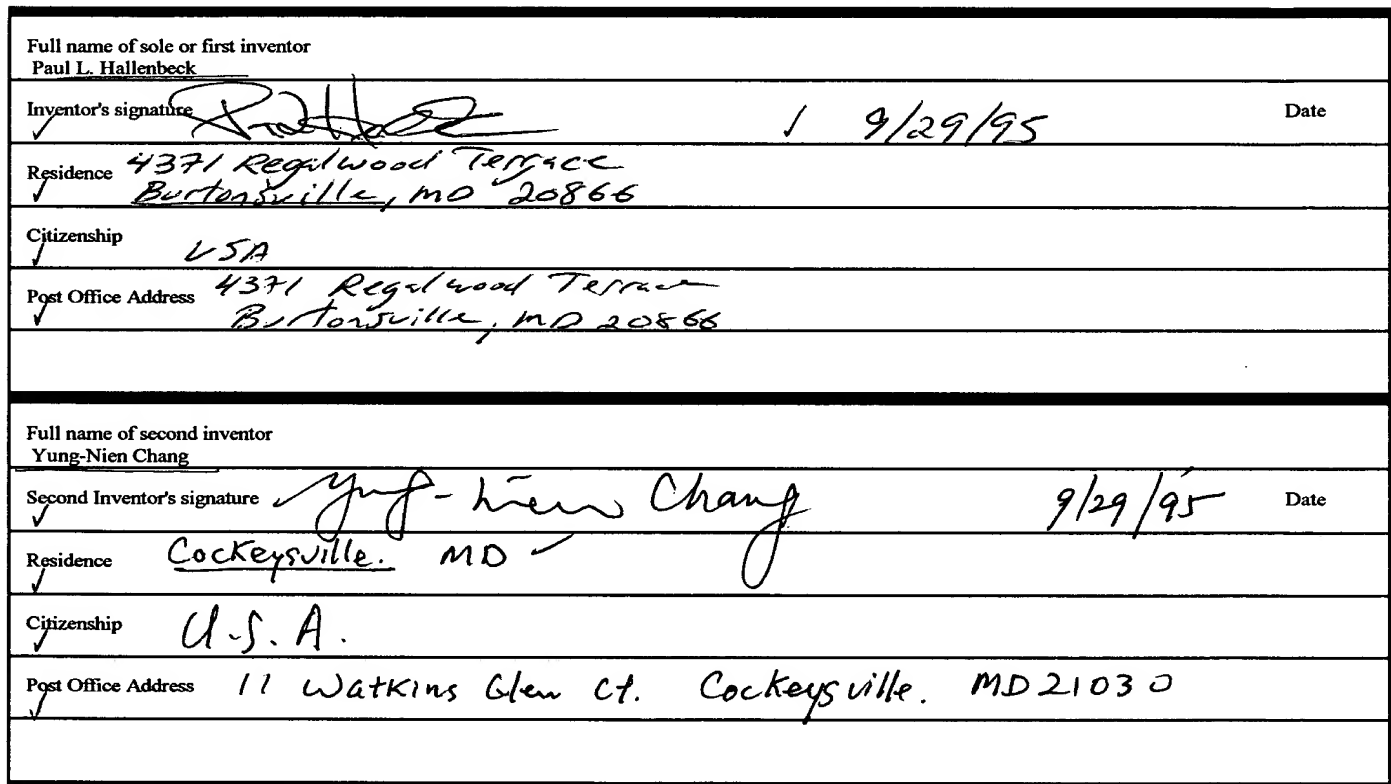 Full name of sole or first inventor
Paul L. Hallenbeck
Inventor's signature ✓ 9/29/95 Date
Residence 4371 Regalwood Terrace
Burtonsville, MD 20866
Citizenship USA
Post Office Address 4371 Regalwood Terrace
Burtonsville, MD 20866
Full name of second inventor
Yung-Nien Chang
Second Inventor's signature Yung-Nien Chang 9/29/95 Date
Residence Cockeysville. MD
Citizenship U.S.A.
Post Office Address 11 Watkins Glen Ct. Cockeysville. MD 21030